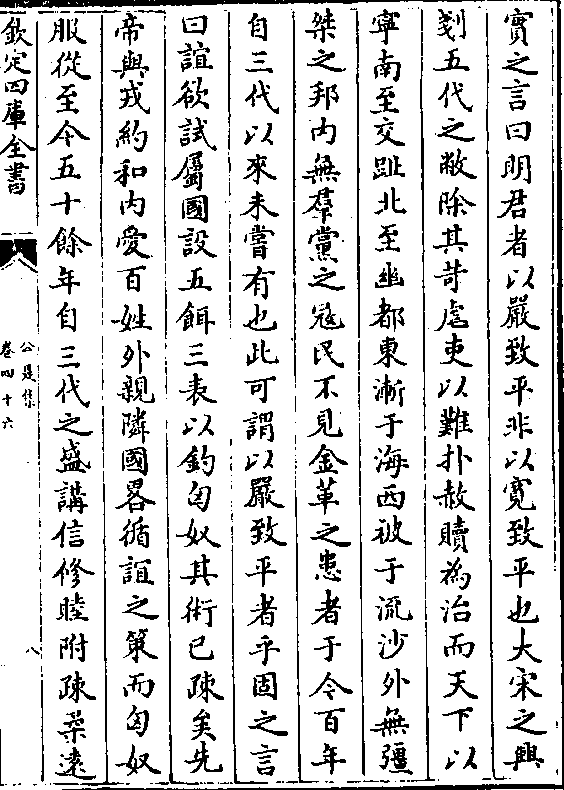 實之言曰明君者以嚴致平非以寬致平也大宋之興
剗五代之敝除其苛虐吏以難扑赦贖為治而天下以
寧南至交趾北至幽都東漸于海西被于流沙外無彊
桀之邦内無羣黨之冦民不見金革之患者于今百年
自三代以來未嘗有也此可謂以嚴致平者乎固之言
曰誼欲試屬國設五餌三表以釣匈奴其術已疎矣先
帝與戎約和内愛百姓外親隣國畧循誼之策而匈奴
服從至今五十餘年自三代之盛講信修睦附疎柔逺
欽定四庫全書
公是集
卷四十六
八